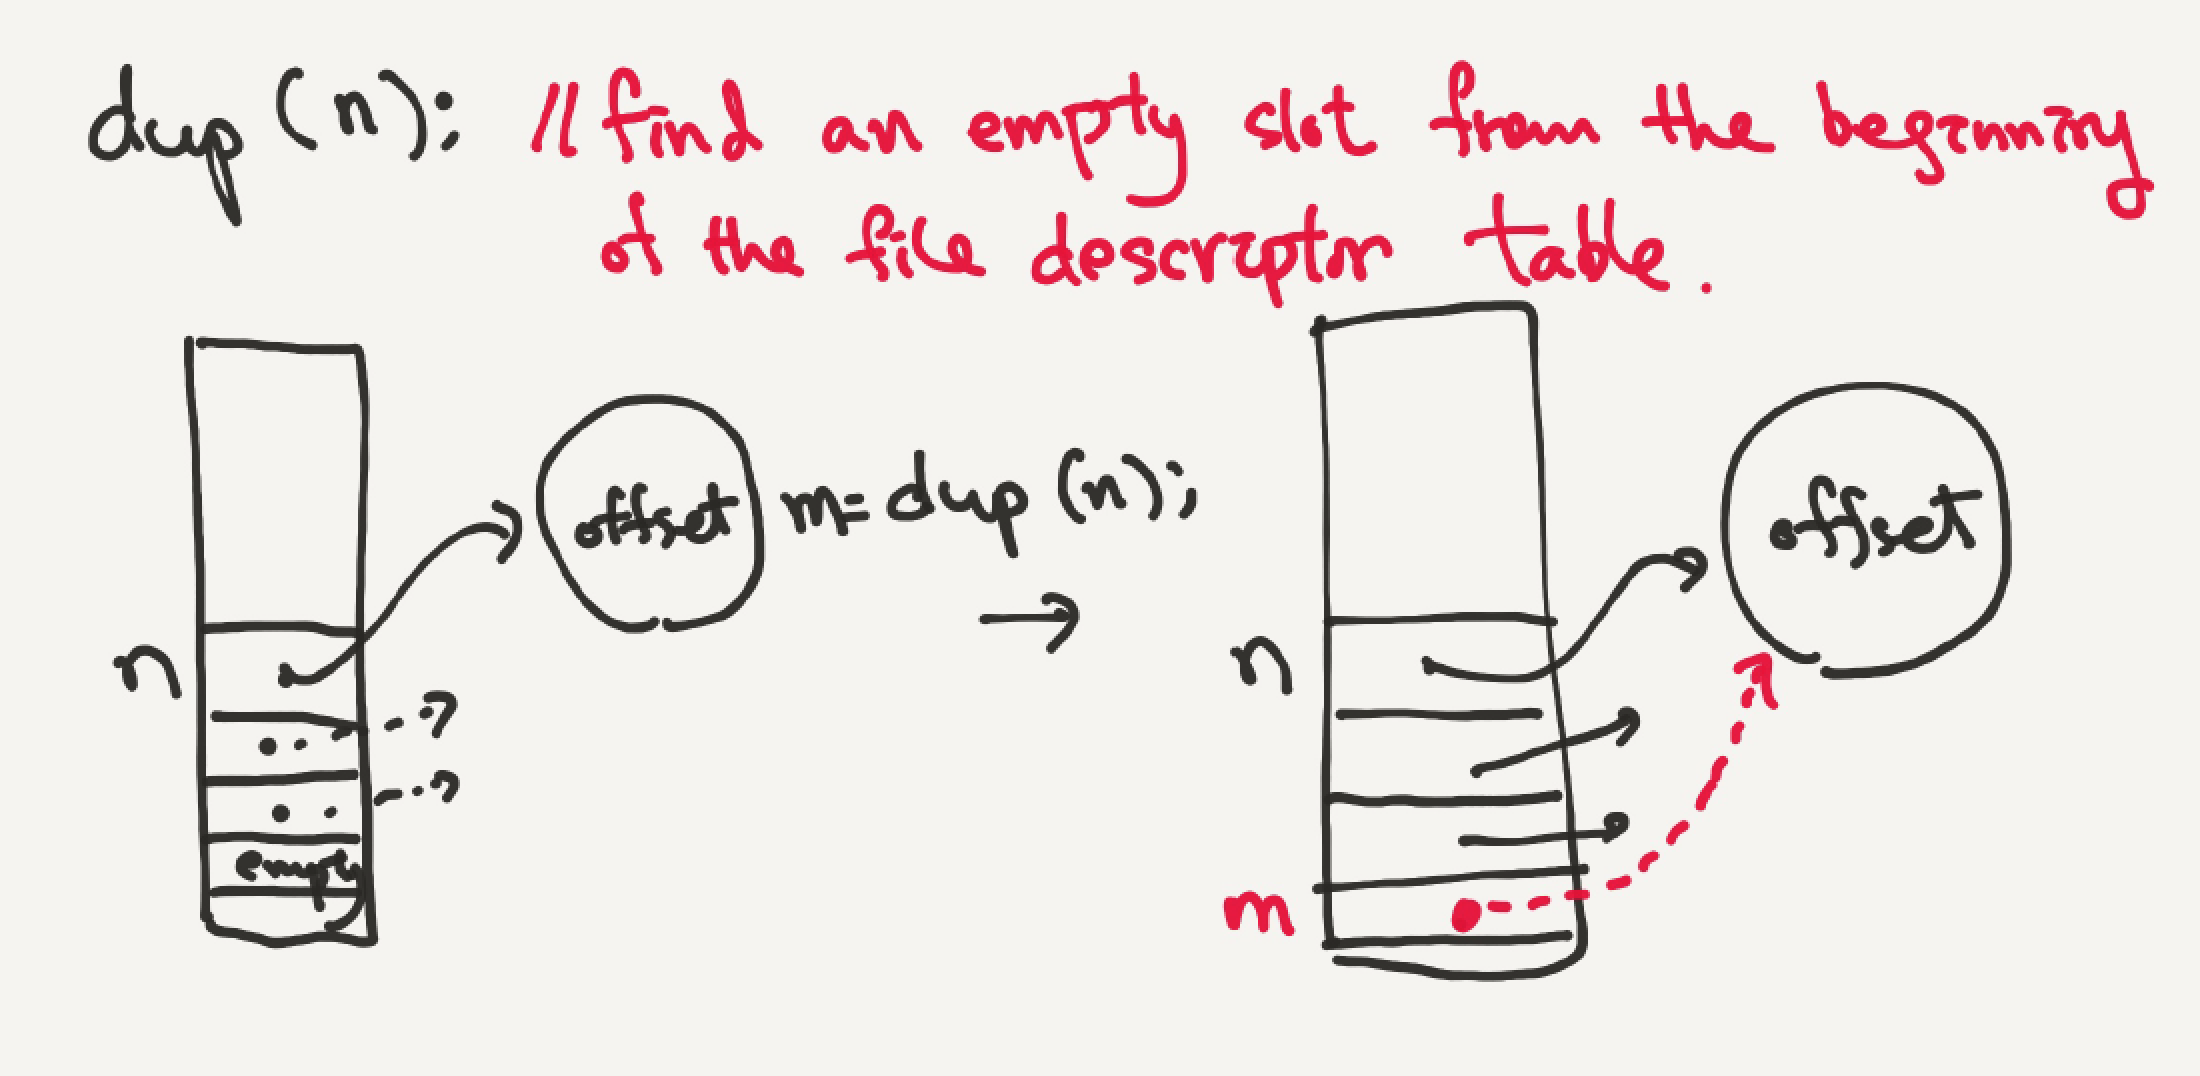 dup (n); // find an empty slot from the beginning
of the file descriptor table.
offset
m = dup (n);
offset
n
n
empty
m